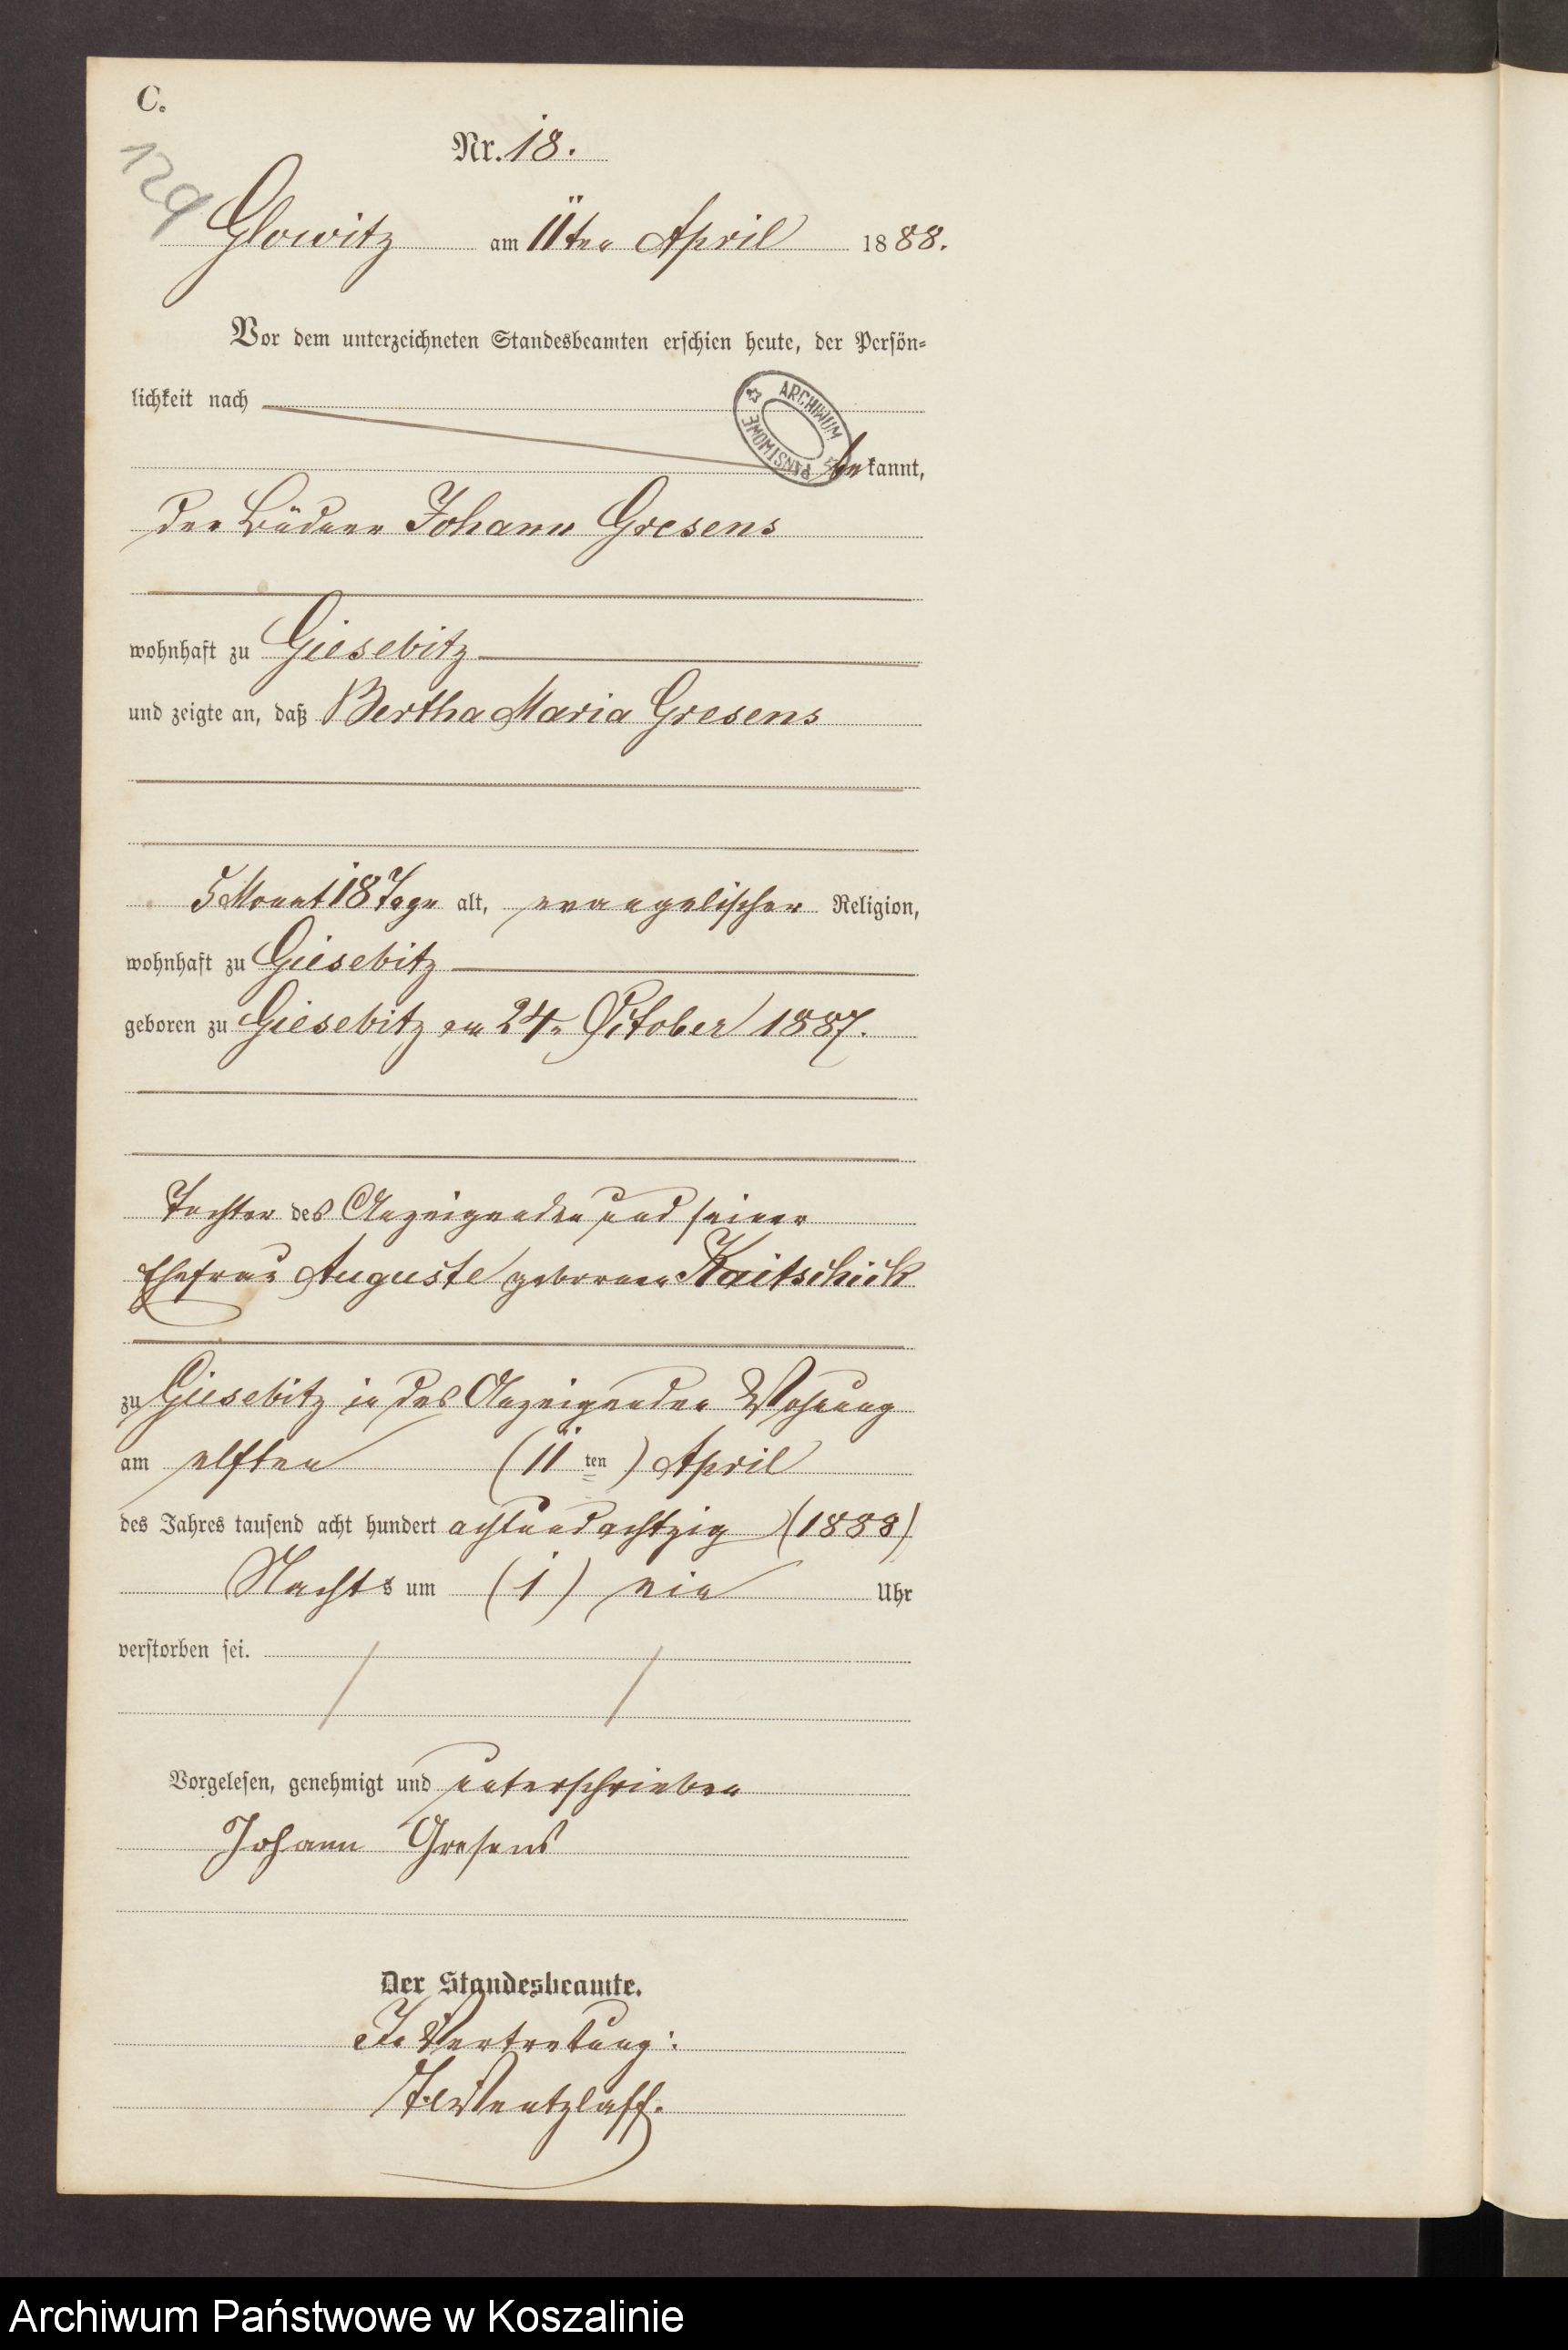 C.
129
Nr. 18.
Glowitz am 11ten April 1888.
Vor dem unterzeichneten Standesbeamten erschien heute, der Persön-
lichkeit nach
ARCHIWUM PAŃSTWOWE
bekannt,
der Büdner Johann Gresens
wohnhaft zu Giesebitz
und zeigte an, daß Bertha Maria Gresens
5 Monat 18 Tage alt, evangelischer Religion,
wohnhaft zu Giesebitz
geboren zu Giesebitz am 24. October 1887.
Tochter des Anzeigenden und seiner
Ehefrau Auguste geborenen Kaitschick
zu Giesebitz in des Anzeigenden Wohnung
am elften (11 ten) April
des Jahres tausend acht hundert achtundachtzig (1888)
Nachts um (1) ein Uhr
verstorben sei.
Vorgelesen, genehmigt und unterschrieben
Johann Gresens
Der Standesbeamte.
In Vertretung:
Wentzlaff.
Archiwum Państwowe w Koszalinie